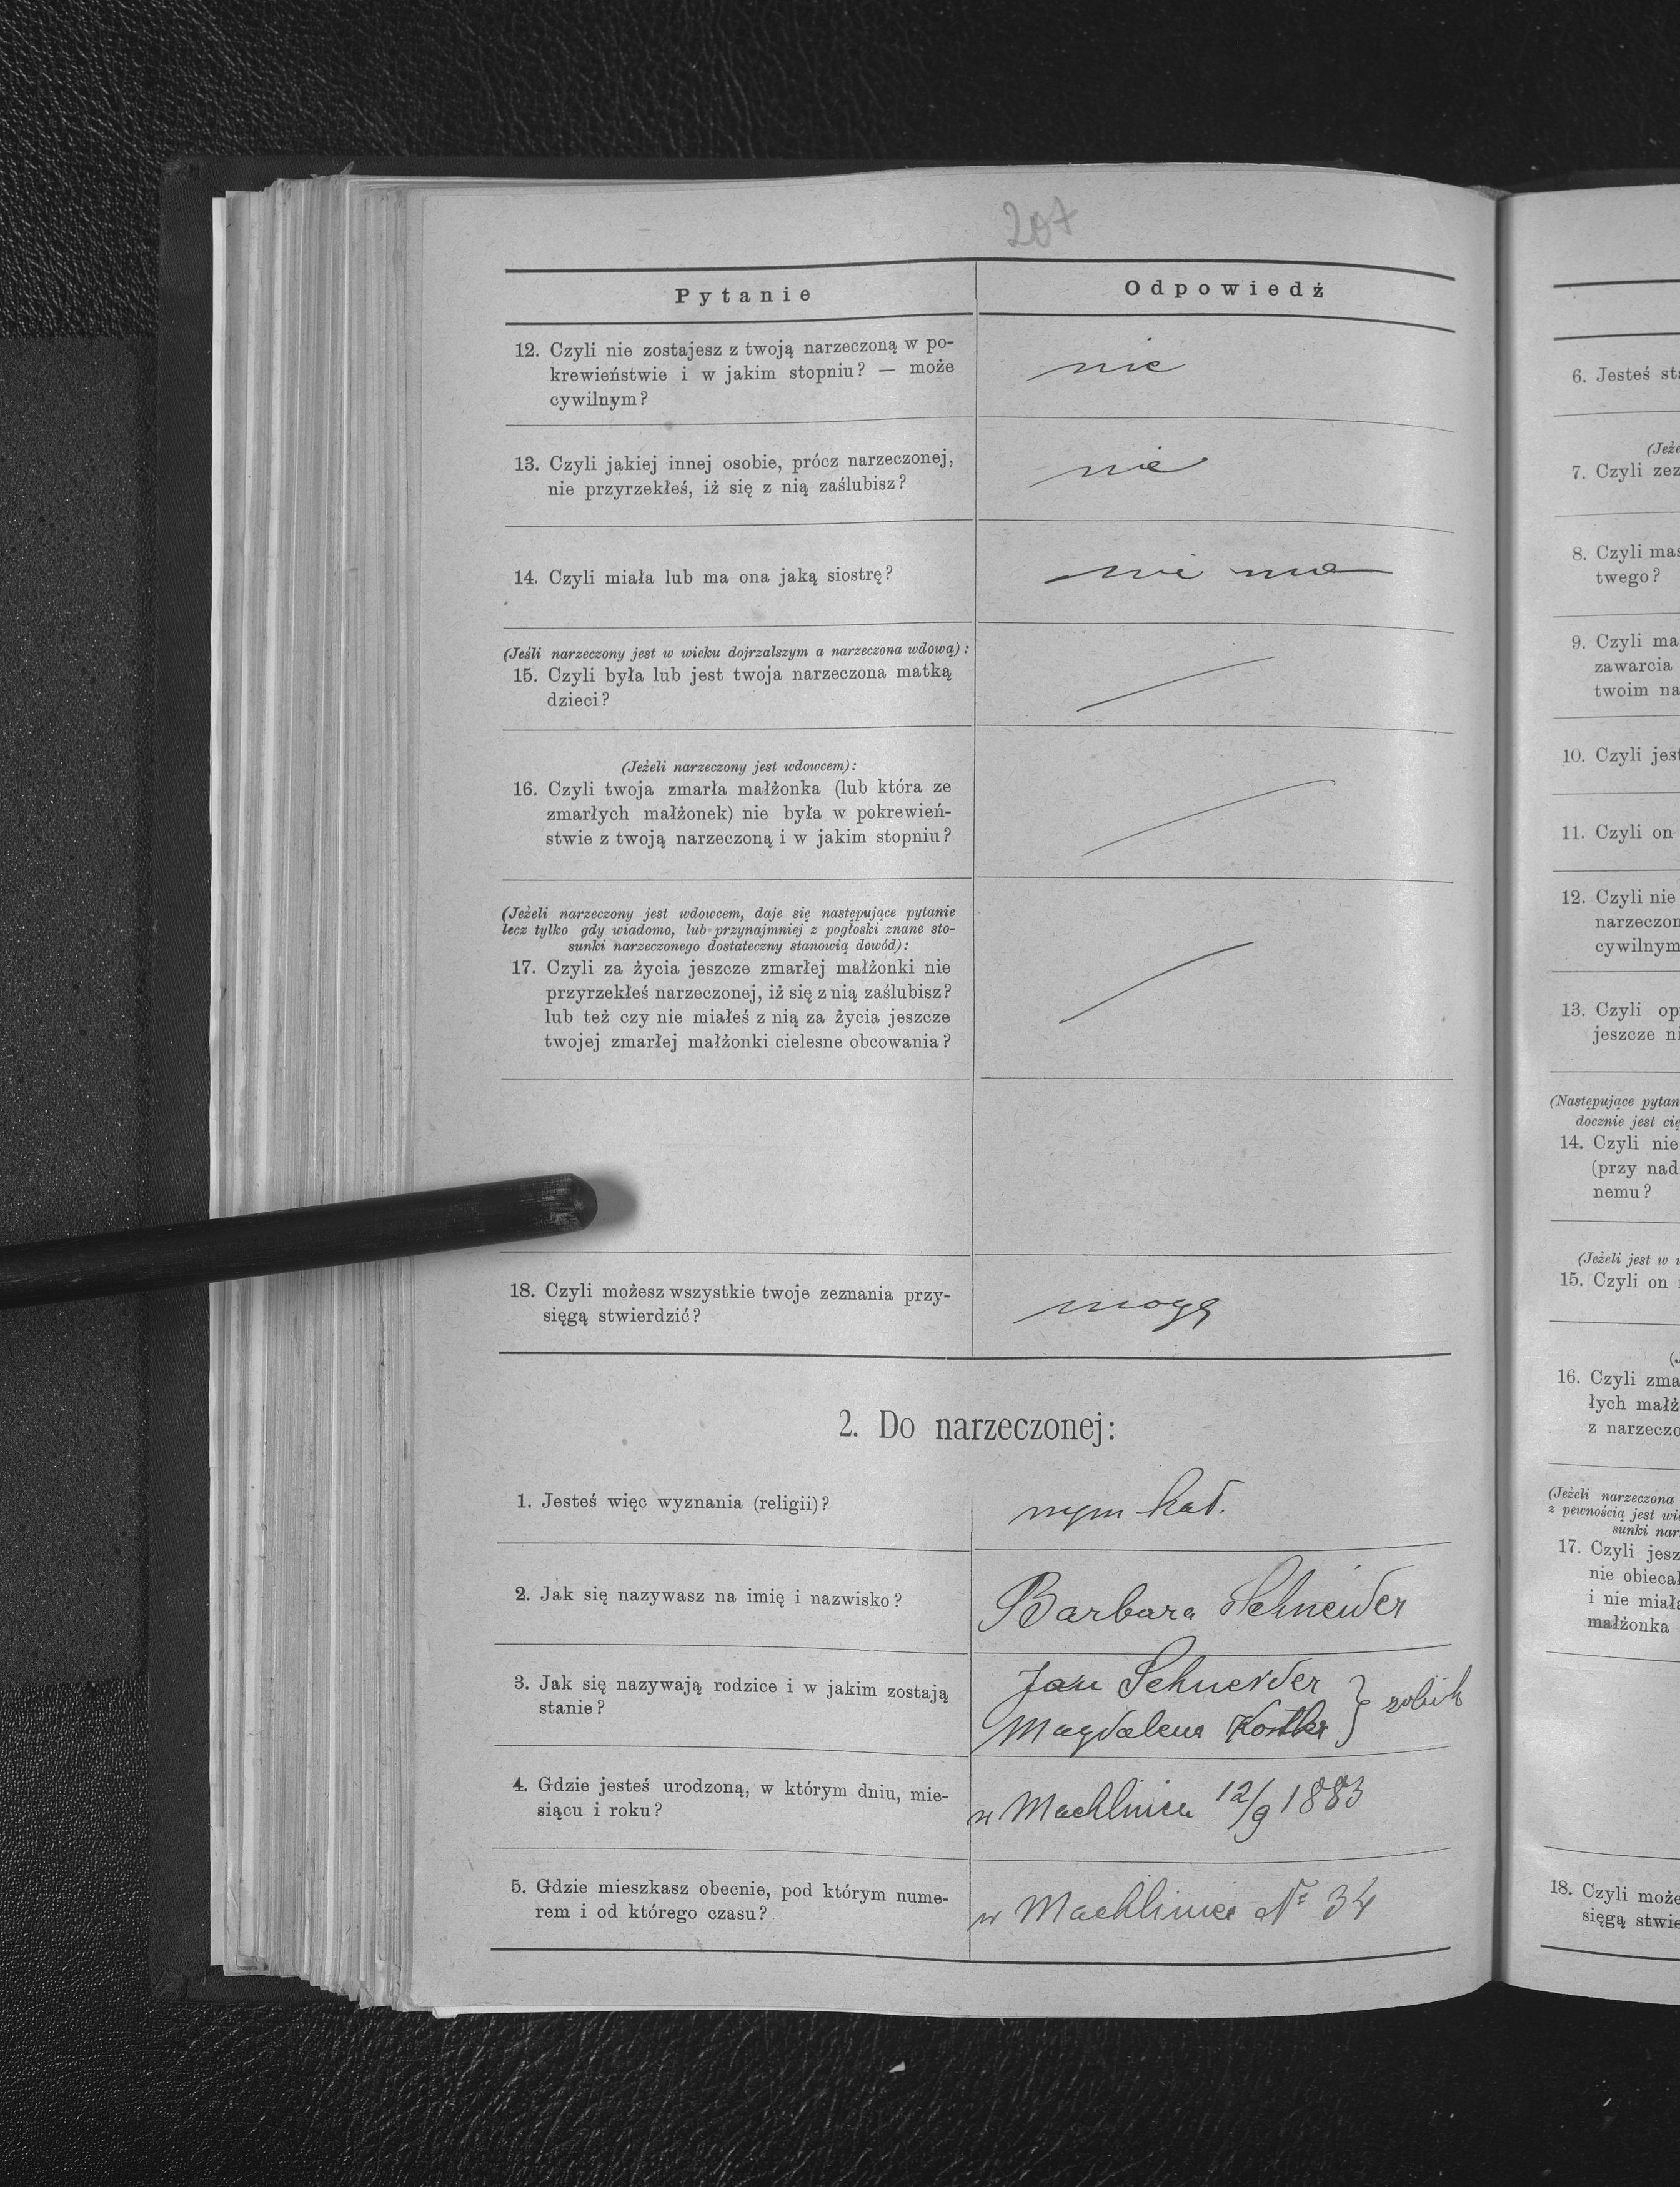 207
Pytanie
Odpowiedź
12. Czyli nie zostajesz z twoją narzeczoną w po-
krewieństwie i w jakim stopniu? — może
cywilnym?
nie
13. Czyli jakiej innej osobie, prócz narzeczonej,
nie przyrzekłeś, iż się z nią zaślubisz?
nie
14. Czyli miała lub ma ona jaką siostrę?
nie ma
(Jeśli narzeczony jest w wieku dojrzalszym a narzeczona wdową):
15. Czyli była lub jest twoja narzeczona matką
dzieci?
(Jeżeli narzeczony jest wdowcem):
16. Czyli twoja zmarła małżonka (lub która ze
zmarłych małżonek) nie była w pokrewień-
stwie z twoją narzeczoną i w jakim stopniu?
(Jeżeli narzeczony jest wdowcem, daje się następujące pytanie
lecz tylko gdy wiadomo, lub przynajmniej z pogłoski znane sto-
sunki narzeczonego dostateczny stanowią dowód):
17. Czyli za życia jeszcze zmarłej małżonki nie
przyrzekłeś narzeczonej, iż się z nią zaślubisz?
lub też czy nie miałeś z nią za życia jeszcze
twojej zmarłej małżonki cielesne obcowania?
18. Czyli możesz wszystkie twoje zeznania przy-
sięgą stwierdzić?
mogę
2. Do narzeczonej:
1. Jesteś więc wyznania (religii)?
rzym kat.
2. Jak się nazywasz na imię i nazwisko?
Barbara Schneider
3. Jak się nazywają rodzice i w jakim zostają
stanie?
Jan Schneider
Magdalena Kostka }
4. Gdzie jesteś urodzoną, w którym dniu, mie-
siącu i roku?
w Machlincu 12/9 1883
5. Gdzie mieszkasz obecnie, pod którym nume-
rem i od którego czasu?
w Machlincu Nr 34
6. Jesteś
7. Czyli
8. Czyli
twego?
9. Czyli
zawarcia
twoim
10. Czyli
11. Czyli on
12. Czyli nie
cywilnym
13. Czyli
jeszcze
(Następujące
docznie jest
14. Czyli nie
(przy nad
nemu?
(Jeżeli jest w
15. Czyli on
16. Czyli
łych
z
(Jeżeli narzeczona
z pewnością jest
sunki
17. Czyli
nie
i nie
małżonka
18. Czyli
sięgą